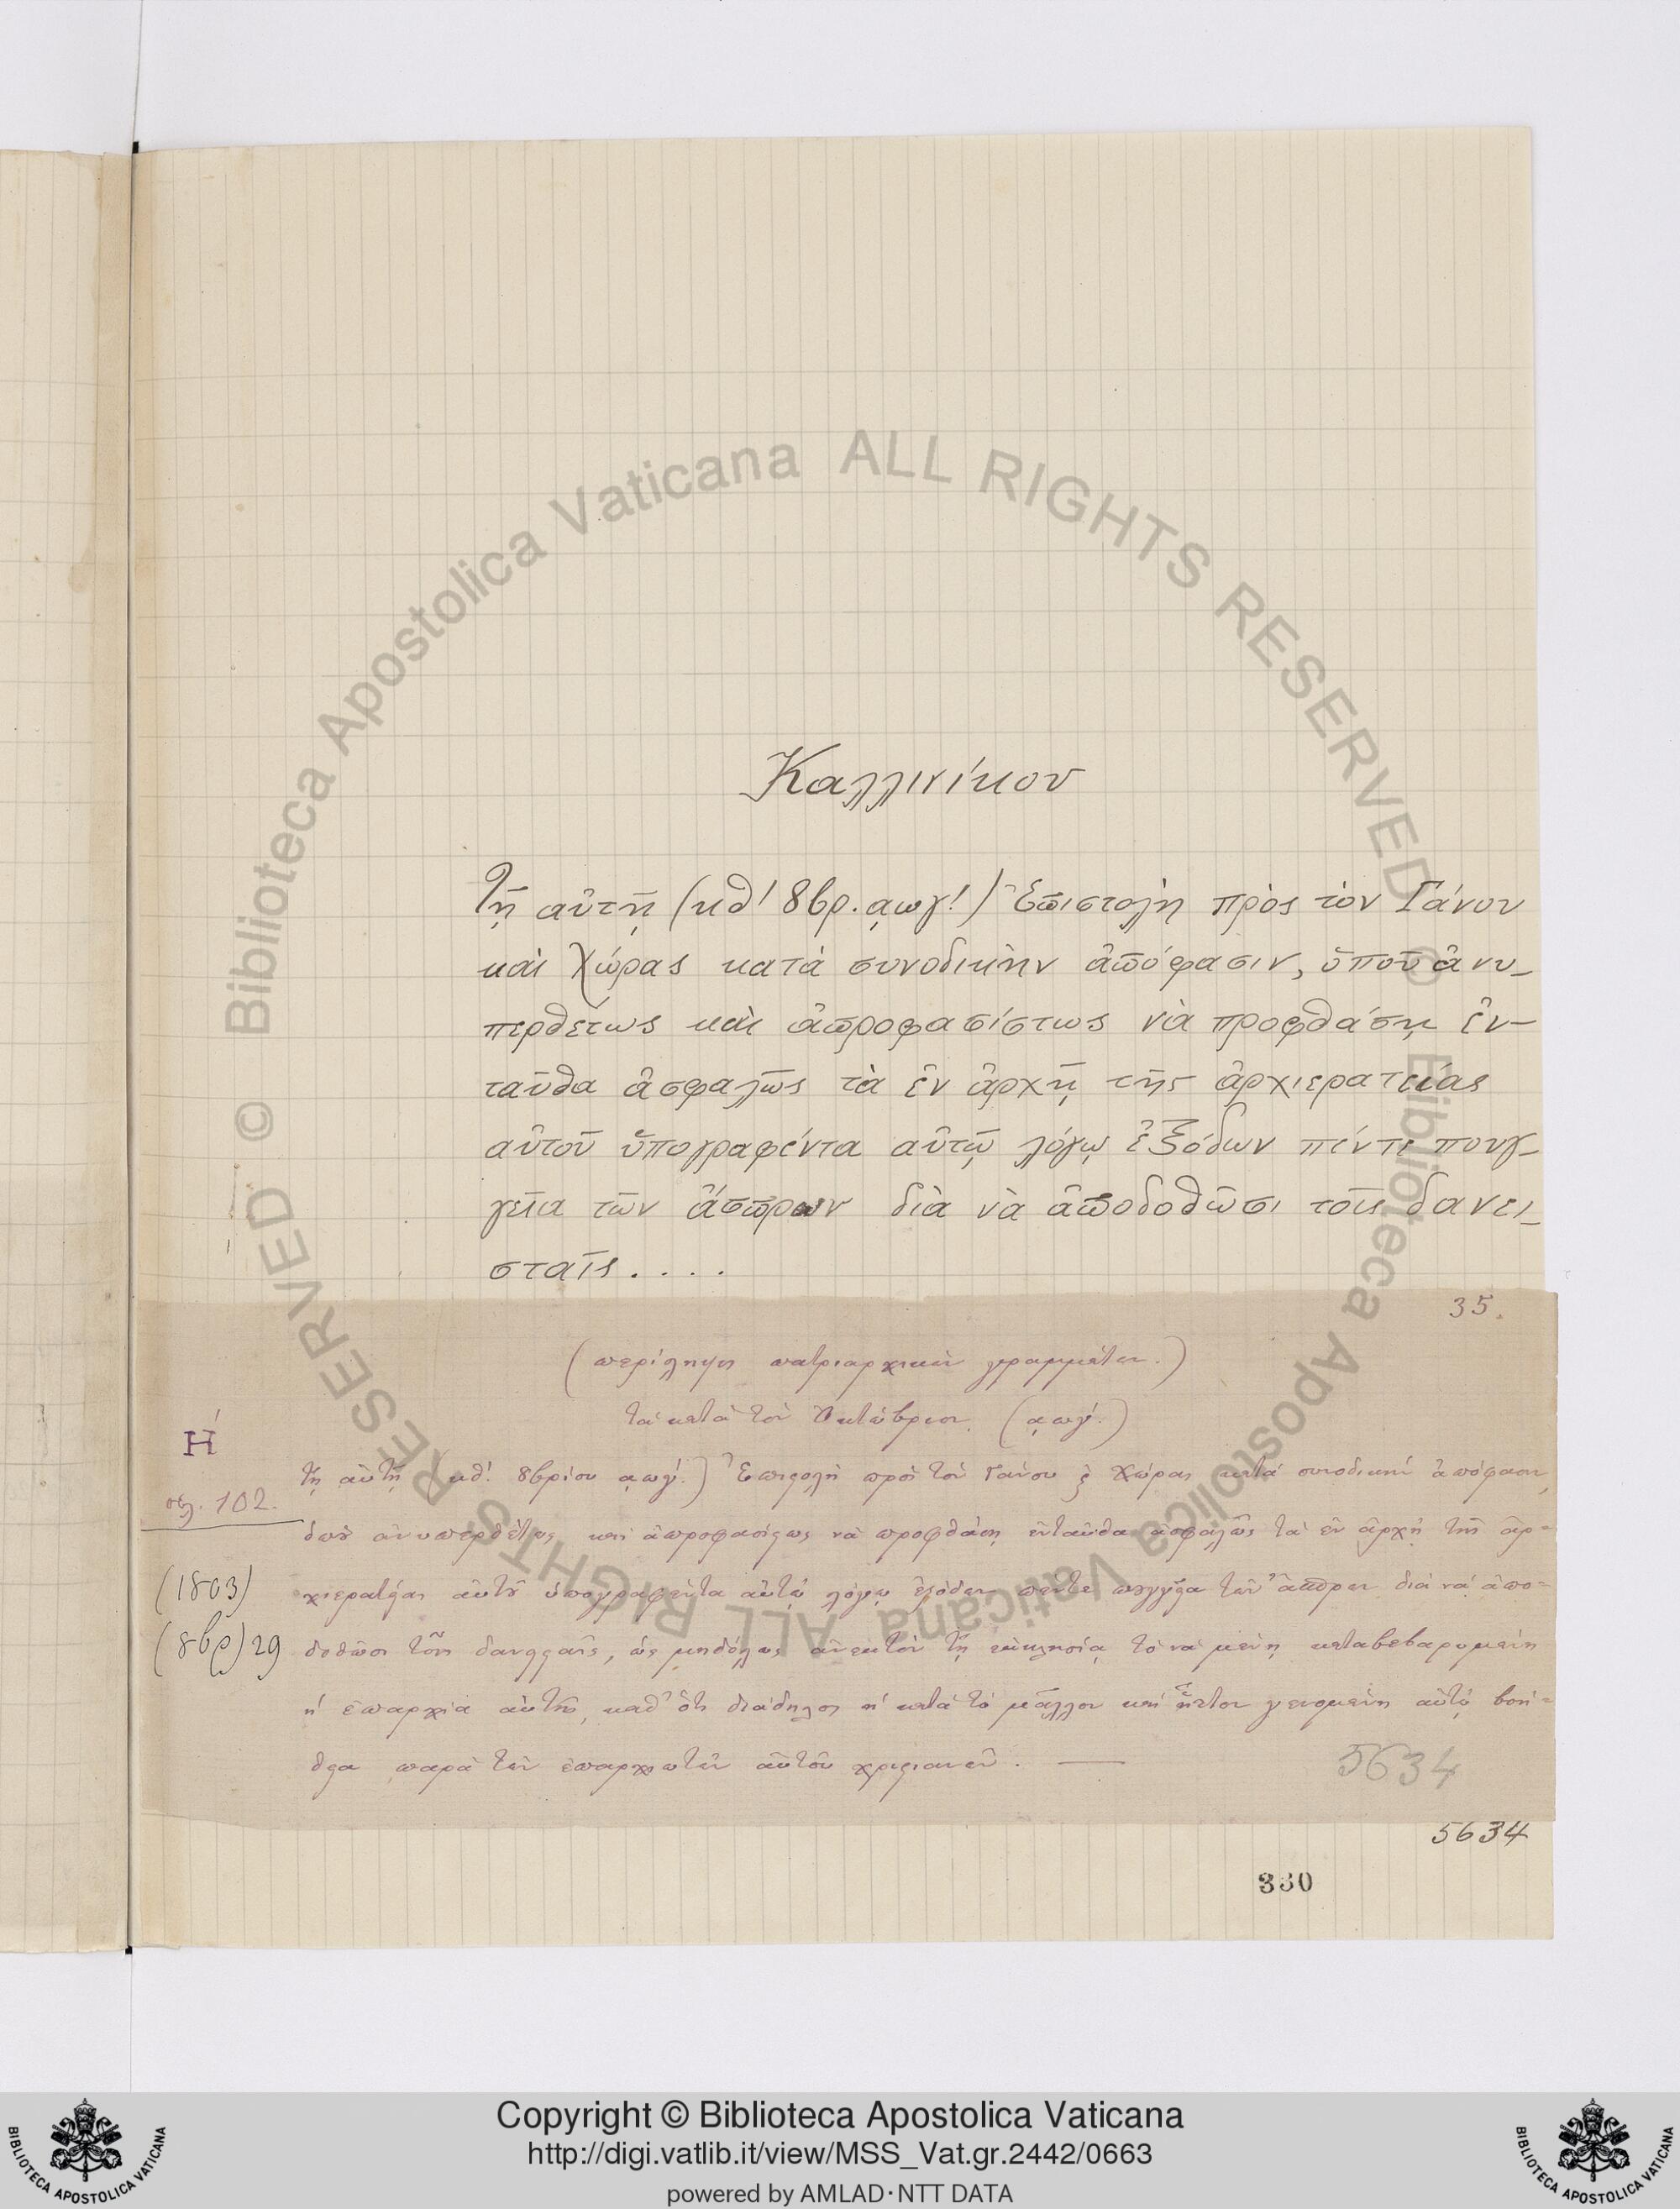 Καλλινίκου
Τῇ αὐτῇ (κθ΄ 8βρ. ͵αωγ΄!) Ἐπιστολὴ πρὸς τὸν Γάνου
καὶ Χώρας κατὰ συνοδικὴν ἀπόφασιν, ὅπου ἀνυ-
περθέτως καὶ ἀπροφασίστως νὰ προφθάσῃ ἐν-
ταῦθα ἀσφαλῶς τὰ ἐν ἀρχῇ τῆς ἀρχιερατείας
αὐτοῦ ὑπογραφέντα αὐτῷ λόγῳ ἐξόδων πέντε πουγ-
γεῖα τῶν ἄσπρων διὰ νὰ ἀποδοθῶσι τοῖς δανει-
σταῖς....
35.
(περίληψις πατριαρχικῶν γραμμάτων.)
τὰ κατὰ τὸν Ὀκτώβριον. (͵αωγ΄.)
Η΄
τῇ αὐτῇ (κθ΄. 8βρίου ͵αωγ΄.) Ἐπιστολὴ πρὸς τὸν Γάνου ϗ Χώρας κατὰ συνοδικὴν ἀπόφασιν,
σελ. 102.
ὅπου ἀνυπερθέτως καὶ ἀπροφασίστως νὰ προφθάσῃ ἐνταῦθα ἀσφαλῶς τὰ ἐν ἀρχῇ τῆς ἀρ-
(1803)
χιερατείας αὐτοῦ ὑπογραφέντα αὐτῷ λόγῳ ἐξόδων πέντε πουγγεῖα τῶν ἄσπρων διὰ νὰ ἀπο-
(8βρ) 29
δοθῶσι τοῖς δανεισταῖς, ὡς μηδόλως ἀνεκτὸν τῇ ἐκκλησίᾳ τὸ νὰ μένῃ καταβεβαρυμένη
ἡ ἐπαρχία αὐτοῦ, καθ' ὅτι διάδηλος ἡ κατὰ τὸ μᾶλλον καὶ ἧττον γενομένη αὐτῷ βοή-
θεια παρὰ τῶν ἐπαρχιωτῶν αὐτοῦ χριστιανῶν. —
5634
5634
330
Copyright © Biblioteca Apostolica Vaticana
http://digi.vatlib.it/view/MSS_Vat.gr.2442/0663
powered by AMLAD·NTT DATA
BIBLIOTECA APOSTOLICA VATICANA
BIBLIOTECA APOSTOLICA VATICANA
© Biblioteca Apostolica Vaticana ALL RIGHTS RESERVED
© Biblioteca Apostolica Vaticana ALL RIGHTS RESERVED